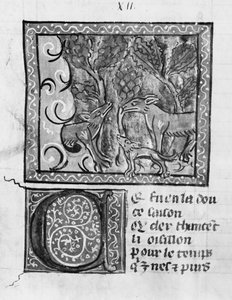 XII.
CE fu en la dou
ce saison
Q̃ cler chantẽt
li oisillon
Pour le temps
q̃ ẽ nes ⁊ purs